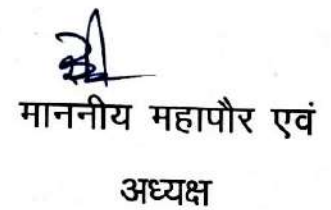 माननीय महापौर एवं
अध्यक्ष